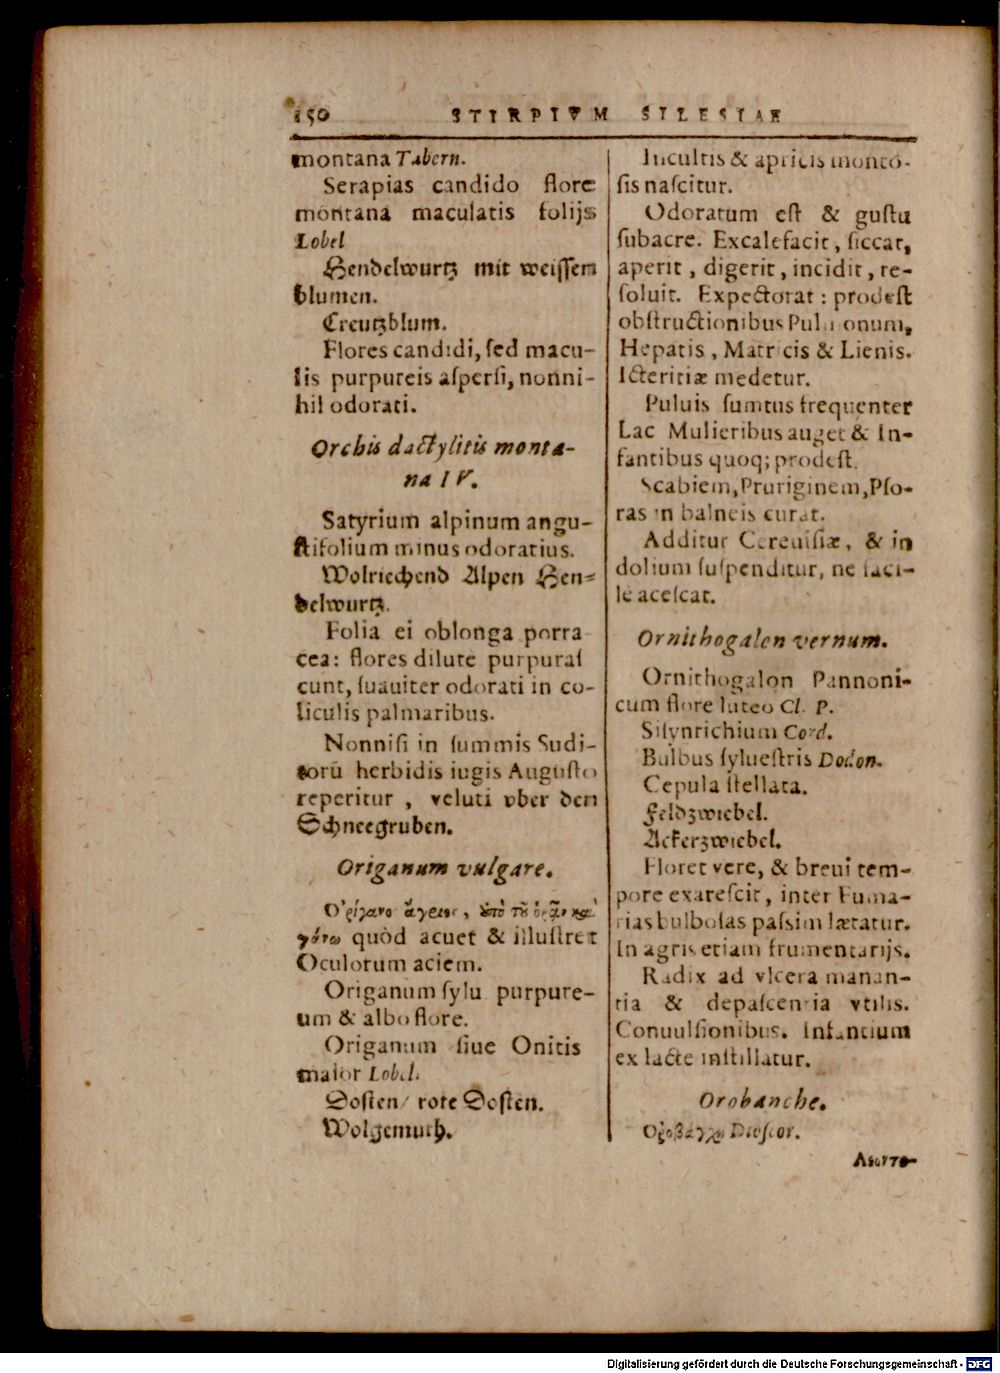 150 STIRPIVM SILESIAE
montana Tabern.
Serapias candido flore
montana maculatis folijs
Lobel
Hendelwurtz mit weissem
blumen.
Creutzblum.
Flores candidi, ſed macu-
lis purpureis aſperſi, nonni-
hil odorati.
Orchis dactylitis monta-
na IV.
Satyrium alpinum angu-
ſtifolium minus odoratius.
Wolriechend Alpen Hen-
delwurtz.
Folia ei oblonga porra
cea: flores dilute purpuraſ
cunt, ſuauiter odorati in co-
liculis palmaribus.
Nonniſi in ſummis Sudi-
torū herbidis iugis Auguſto
reperitur, veluti vber den
Schneegruben.
Origanum vulgare.
quòd acuet & illuſtret
Oculorum aciem.
Origanum ſylu purpure-
um & albo flore.
Origanum ſiue Onitis
maior Lobel.
Doſten/ rote Doſten.
Wolgemuth.
Incultis & apricis monto-
ſis naſcitur.
Odoratum eſt & guſtu
ſubacre. Excalefacit, ſiccat,
aperit, digerit, incidit, re-
ſoluit. Expectorat: prodeſt
obſtructionibus Pulmonum,
Hepatis, Matricis & Lienis.
Icteritiæ medetur.
Puluis ſumtus frequenter
Lac Mulieribus auget & In-
fantibus quoq; prodeſt.
Scabiem, Pruriginem, Pſo-
ras in balneis curat.
Additur Cereuiſiæ, & in
dolium ſuſpenditur, ne faci-
le aceſcat.
Ornithogalon vernum.
Ornithogalon Pannoni-
cum flore luteo Cl. P.
Siſynrichium Cord.
Bulbus ſylueſtris Dodon.
Cepula ſtellata.
Feldzwiebel.
Ackerzwiebel.
Floret vere, & breui tem-
pore exareſcit, inter Fuma-
rias bulboſas paſſim lætatur.
In agris etiam frumentarijs.
Radix ad vlcera manan-
tia & depaſcentia vtilis.
Conuulſionibus. Infantium
ex lacte inſtillatur.
Orobanche.
Ὀροβάγχη Dioſcor.